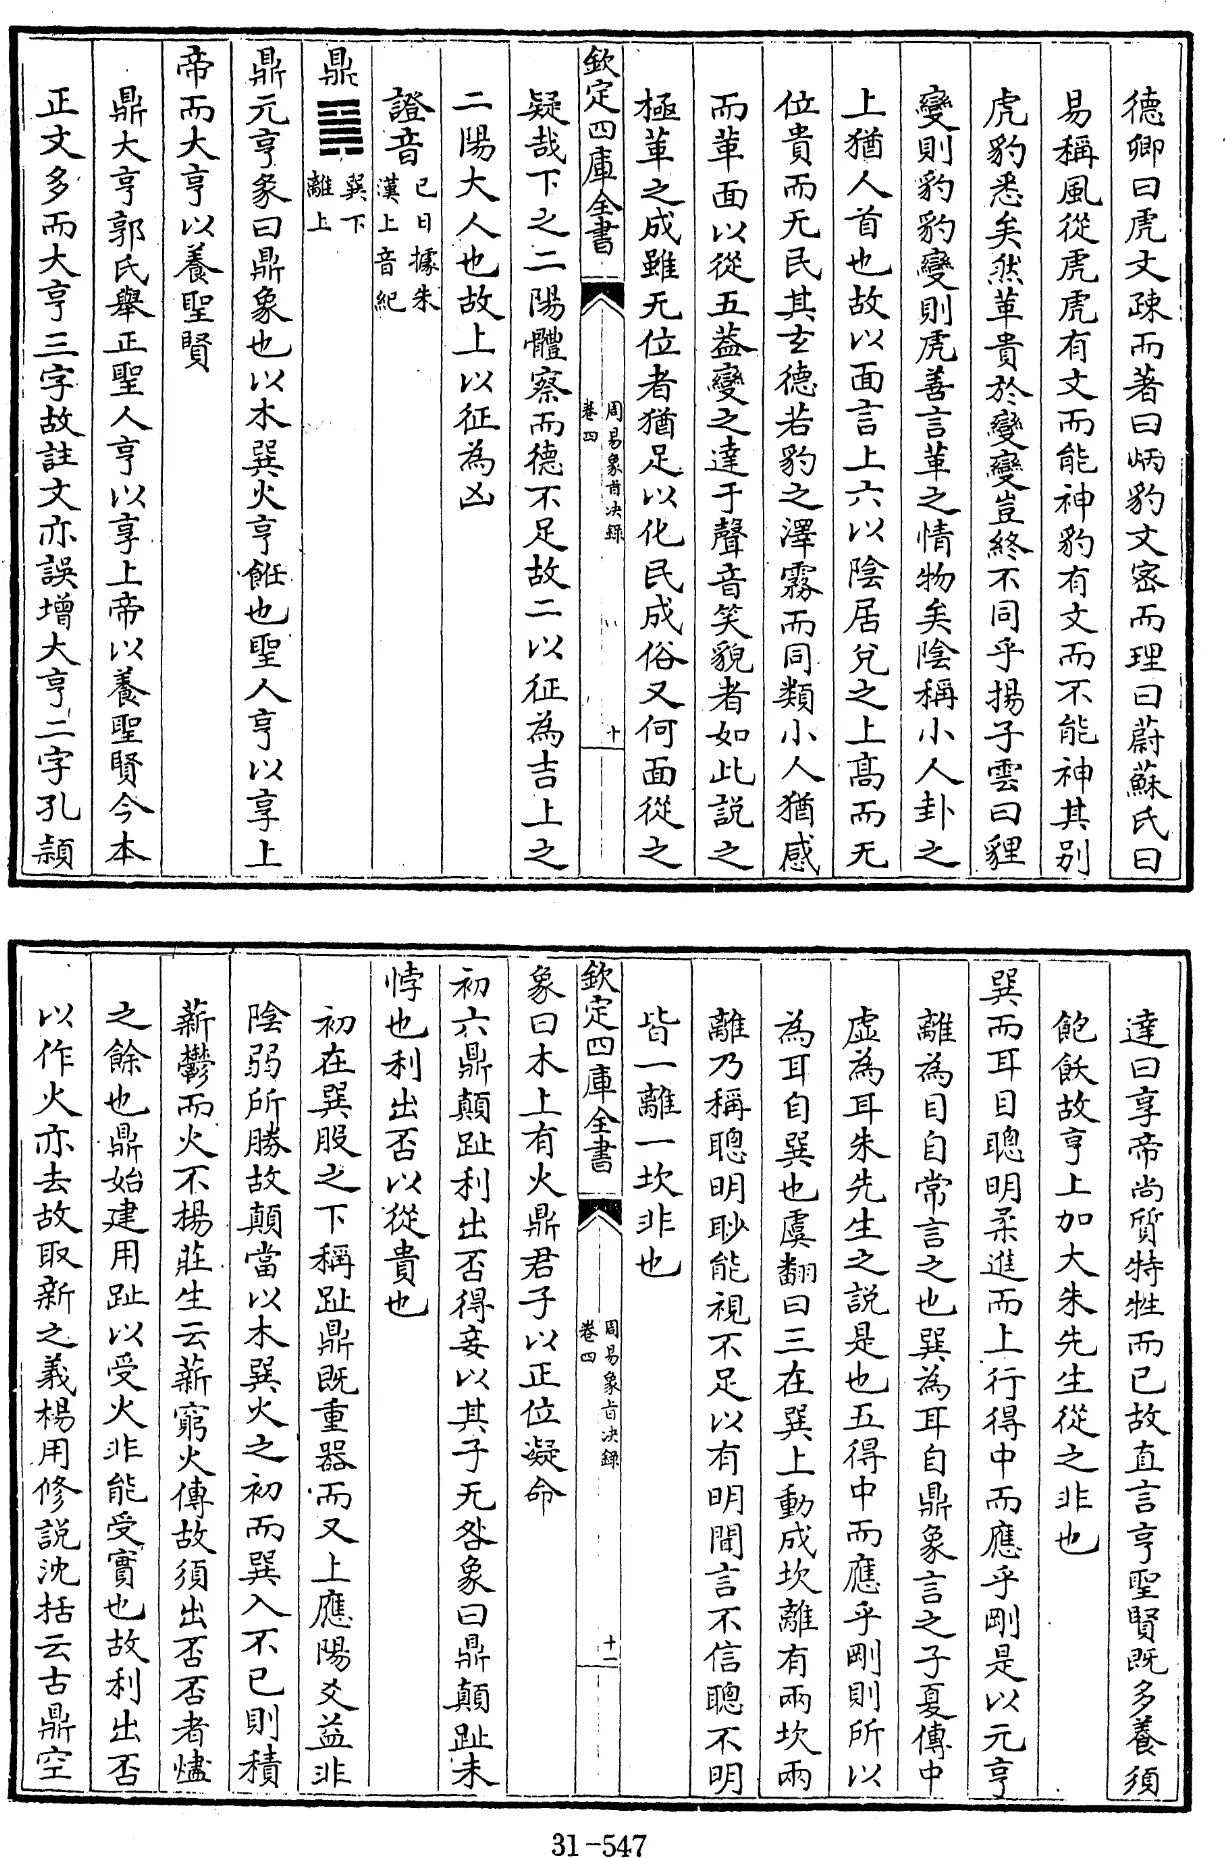 德卿曰虎文疎而著曰炳豹文密而理曰蔚蘇氏曰
易稱風從虎虎有文而能神豹有文而不能神其別
虎豹悉矣然革貴於變變豈終不同乎揚子雲曰貍
變則豹豹變則虎善言革之情物矣陰稱小人卦之
上猶人首也故以面言上六以陰居兌之上高而无
位貴而无民其玄德若豹之澤霧而同類小人猶感
而革面以從五葢變之達于聲音笑貌者如此説之
極革之成雖无位者猶足以化民成俗又何面從之
欽定四庫全書
周易象旨決錄
卷四
十
疑哉下之二陽體察而德不足故二以征為吉上之
二陽大人也故上以征為凶
證音 已日據朱
漢上音紀
鼎䷱ 巽下
離上
鼎元亨彖曰鼎象也以木巽火亨飪也聖人亨以享上
帝而大亨以養聖賢
鼎大亨郭氏舉正聖人亨以享上帝以養聖賢今本
正文多而大亨三字故註文亦誤增大亨二字孔穎
達曰享帝尚質特牲而已故直言亨聖賢既多養須
飽飫故亨上加大朱先生從之非也
巽而耳目聰明柔進而上行得中而應乎剛是以元亨
離為目自常言之也巽為耳自鼎象言之子夏傳中
虛為耳朱先生之説是也五得中而應乎剛則所以
為耳自巽也虞翻曰三在巽上動成坎離有兩坎兩
離乃稱聰明眇能視不足以有明聞言不信聰不明
皆一離一坎非也
欽定四庫全書
周易象旨決錄
卷四
十一
象曰木上有火鼎君子以正位凝命
初六鼎顛趾利出否得妾以其子无咎象曰鼎顛趾未
悖也利出否以從貴也
初在巽股之下稱趾鼎既重器而又上應陽爻益非
陰弱所勝故顛當以木巽火之初而巽入不已則積
薪鬱而火不揚莊生云薪窮火傳故須出否否者燼
之餘也鼎始建用趾以受火非能受實也故利出否
以作火亦去故取新之義楊用修説沈括云古鼎空
31-547